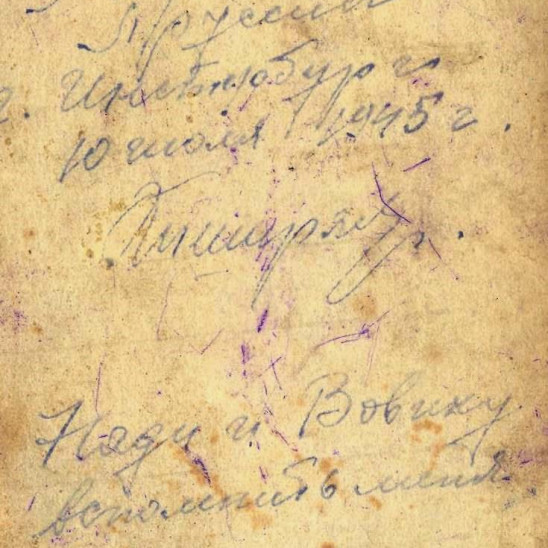 Пруссии
г. Инстербург
10 июля 1945 г.
Наде и Вовику
вспомнить меня